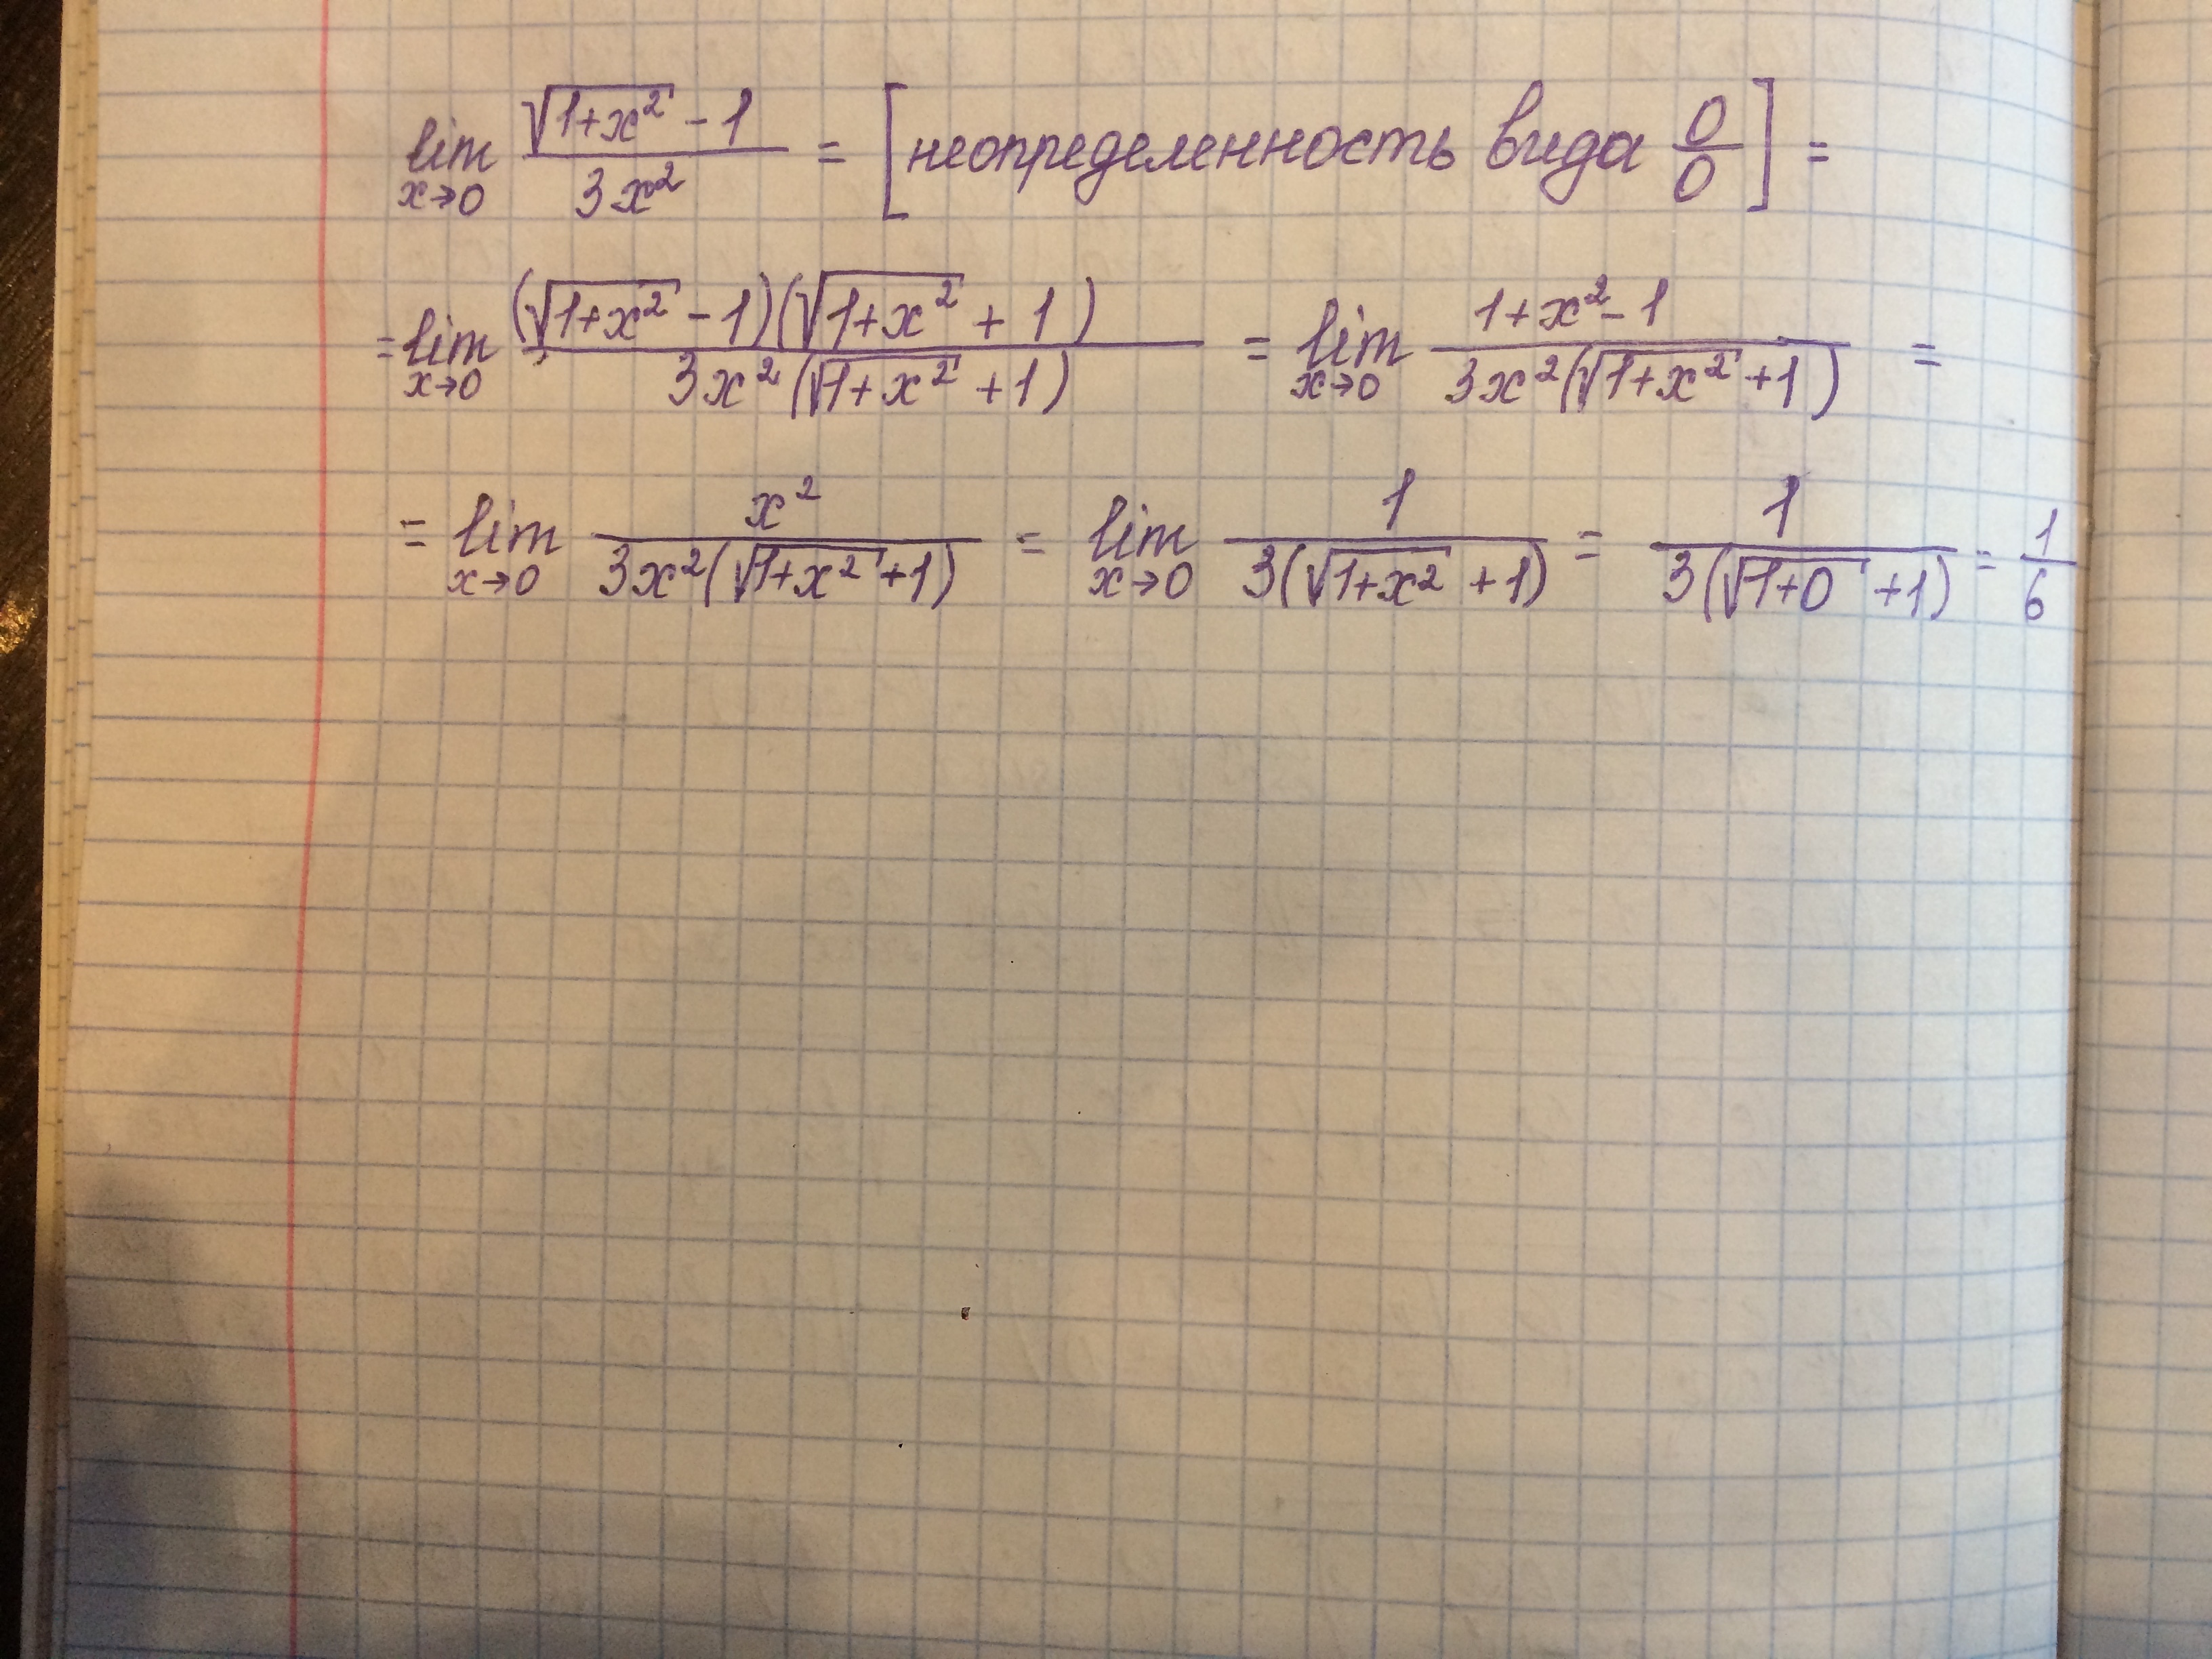 lim x→0 (√(1+x²) - 1)/(3x²) = [неопределенность вида 0/0] =
= lim x→0 ((√(1+x²) - 1)(√(1+x²) + 1))/(3x²(√(1+x²) + 1)) = lim x→0 (1+x²-1)/(3x²(√(1+x²) + 1)) =
= lim x→0 x²/(3x²(√(1+x²) + 1)) = lim x→0 1/(3(√(1+x²) + 1)) = 1/(3(√(1+0) + 1)) = 1/6